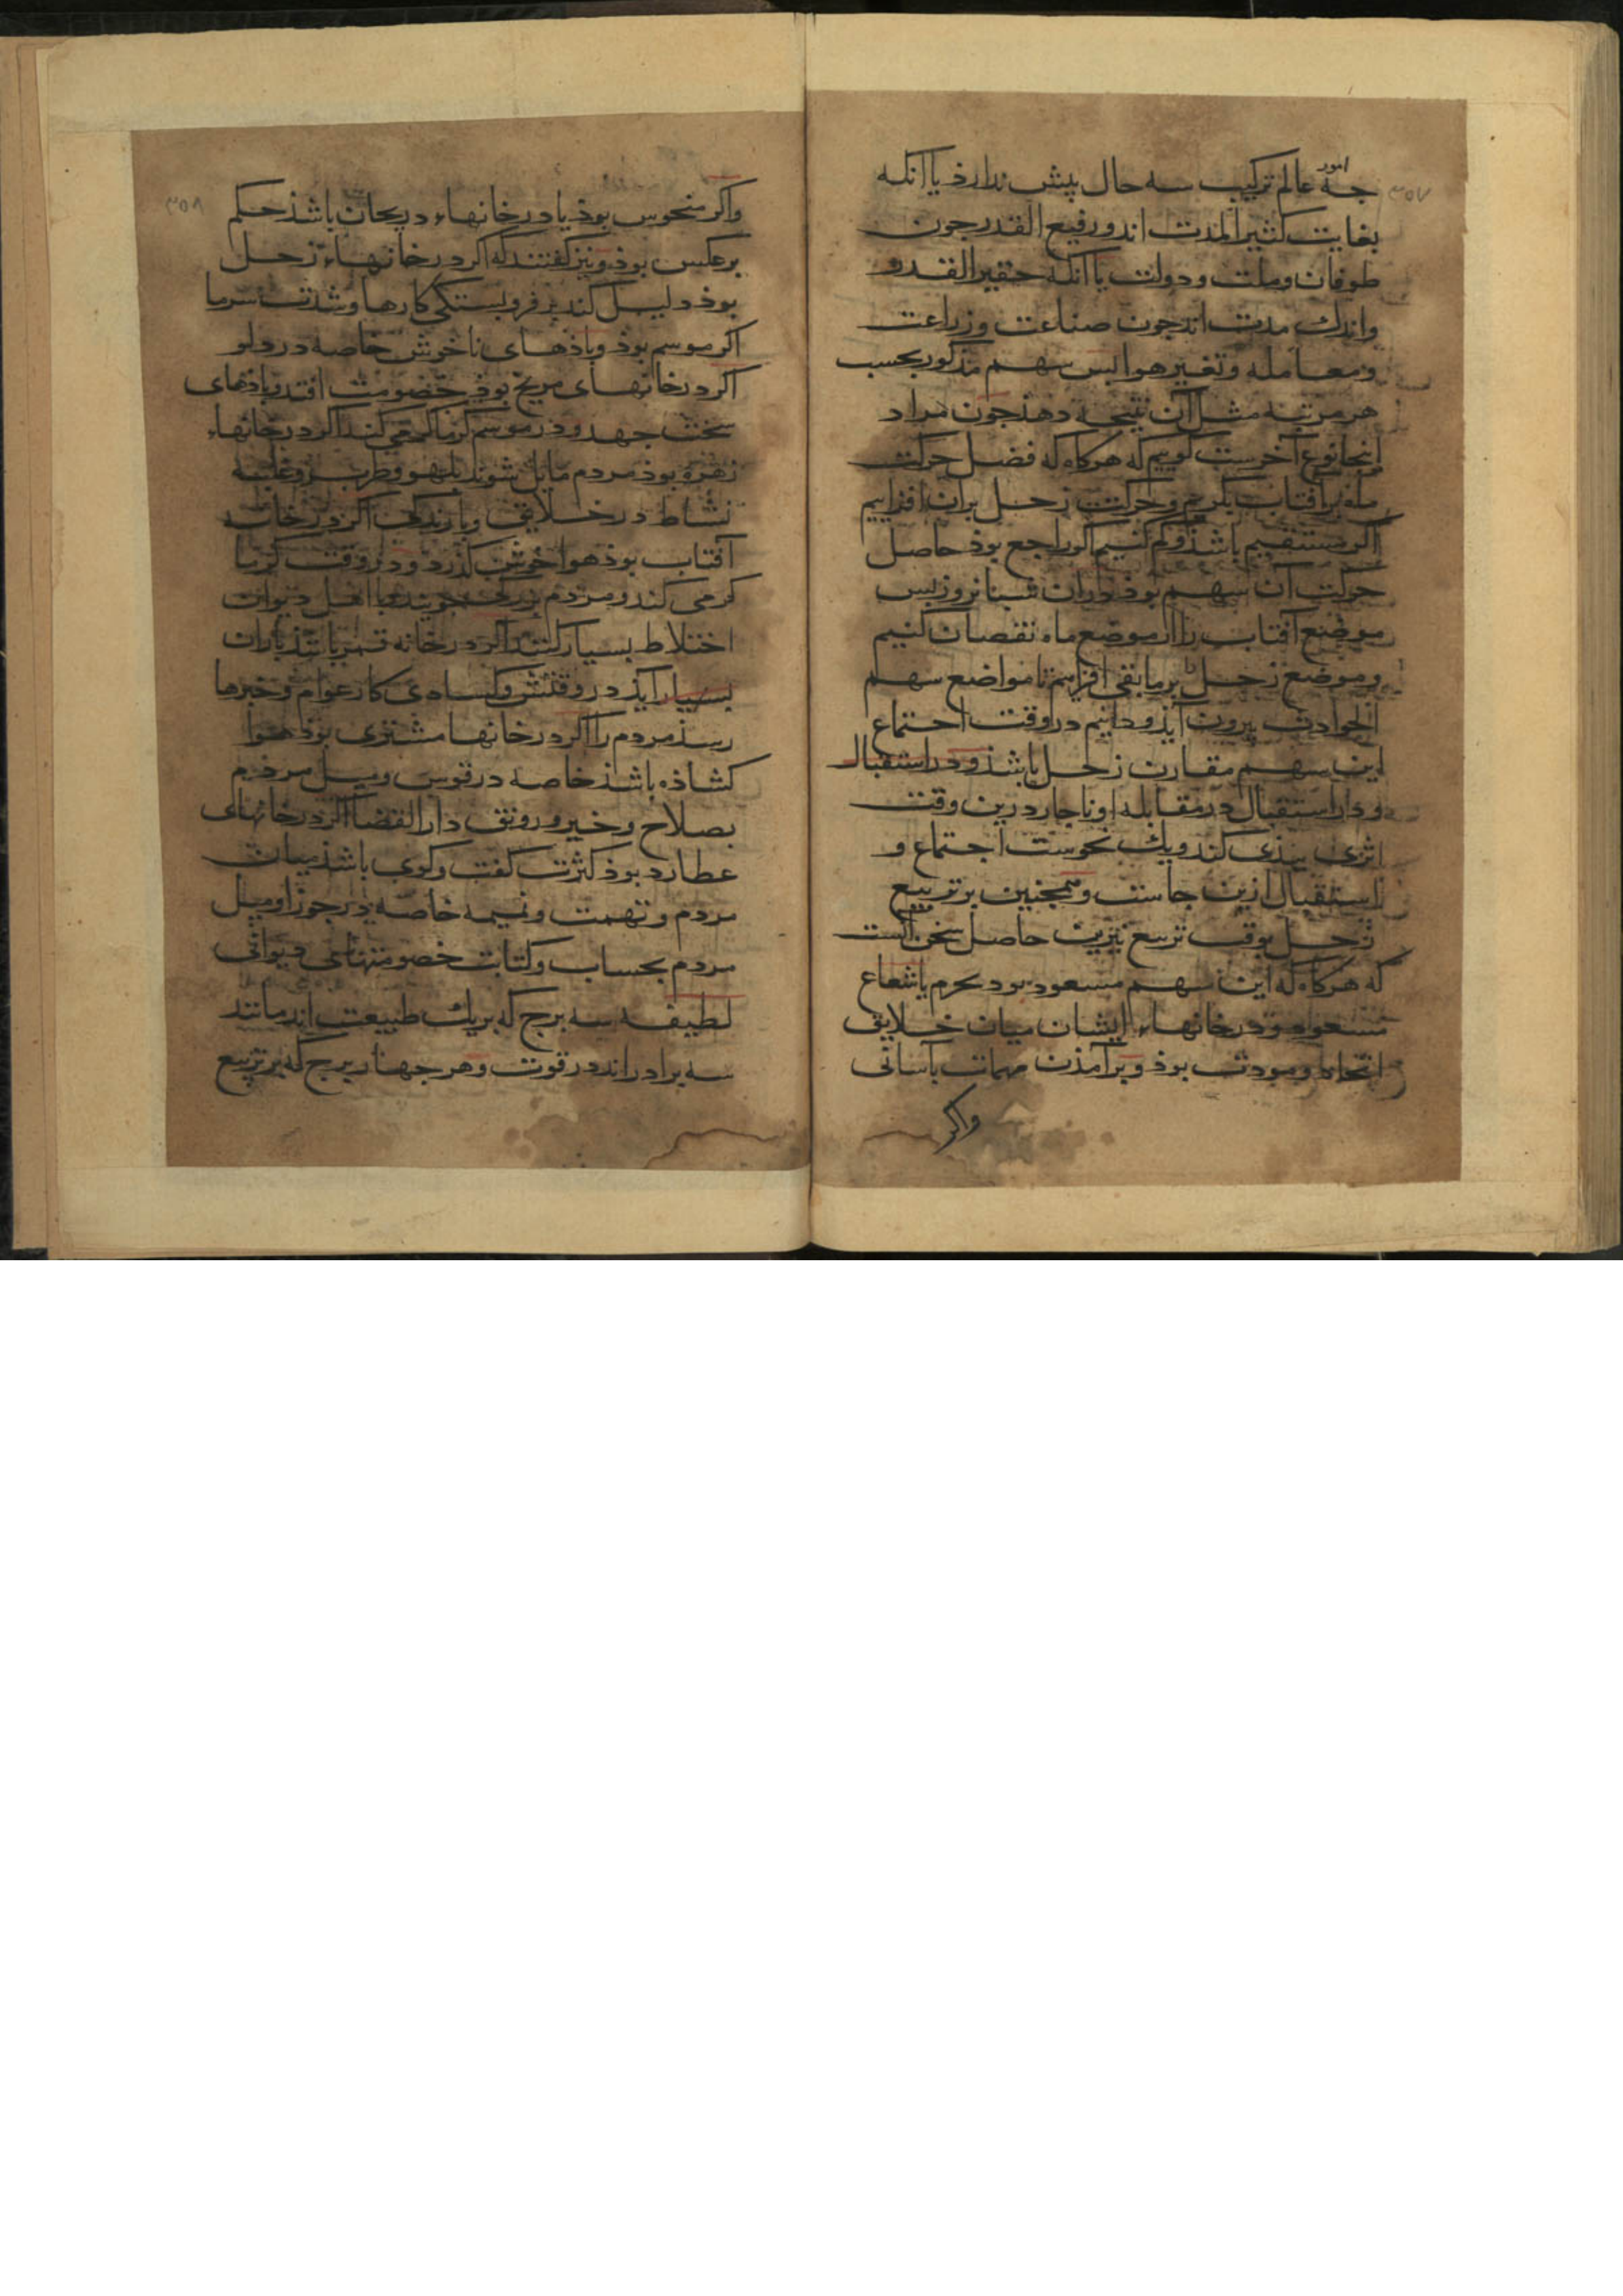 ۳۵۷
امور
جه عالم ترکیب سه حال بیش ندارذ یا آنکه
بغایت کثیر المدت اند و رفیع القدر جون
طوفان و ملت و دولت یا آنکه حقیر القدر و
واندك مدت اند جون صناعت و زراعت
و معامله و تغییر هوا بس سهم مذکور بحسب
هر مرتبه مثل آن نتیجه دهذ جون مراد
اینجا نوع آخرست کوییم که هرکاه که فضل حرکت
ماه بر آفتاب بکریم و حرکت زحل بران افزاییم
اکر مستقیم باشذ و کم کنیم اکر راجع بوذ حاصل
حرکت آن سهم بوذ دران شبانروز بس
موضع آفتاب را از موضع ماه نقصان کنیم
و موضع زحل بر مابقی افزاییم تا مواضع سهم
الحوادث بیرون آیذ و دانیم در وقت اجتماع
این سهم مقارن زحل باشذ و در استقبال
و در استقبال در مقابله او ناجار درین وقت
اثری بذی کند و یك نحوست اجتماع و
استقبال ازین جاست و همجنین بر تربیع
زحل بوقت تربیع نیرین حاصل سخن آنست
که هرکاه که این سهم مسعود بود بجرم یا شعاع
مسعود و در خانهاء ایشان میان خلایق
اتحاد و مودت بوذ و برآمذن مهمات بآسانی
واکر
۳۵۸
واکر منحوس بوذ یا در خانهاء در یجان باشذ حکم
برعکس بوذ و نیز کفتند که اکر در خانهاء زحل
بوذ دلیل کند بر فرو بستکی کارها و شدت سرما
اکر موسم بوذ و باذهای ناخوش خاصه در دلو
اکر در خانهای مریخ بوذ خصومت افتد و باذهای
سخت جهد و در موسم کرما کرمی کند اکر در خانهاء
زهره بوذ مردم مایل شوند بلهو و طرب و غلبه
نشاط در خلایق و بارندکی اکر در خانه
آفتاب بوذ هوا خوش کذرد و در وقت کرما
کرمی کند و مردم بزرکی جویند و با اهل دیوان
اختلاط بسیار کنند اکر در خانه قمر باشذ باران
بسیار آیذ در وقتش و کساذی کار عوام و خبرها
رسذ مردم را اکر در خانها مشتری بوذ هوا
کشاذه باشذ خاصه در قوس و میل مردم
بصلاح و خیر و رونق دار القضا اکر در خانهای
عطارد بوذ کثرت کفت و کوی باشذ میان
مردم و تهمت و نمیمه خاصه در جوزا و میل
مردم بحساب و کتابت خصومتهای دیوانی
لطیفه سه برج که بریك طبیعت اند مانند
سه برادر اند در قوت و هر جهار برج که بر تربیع